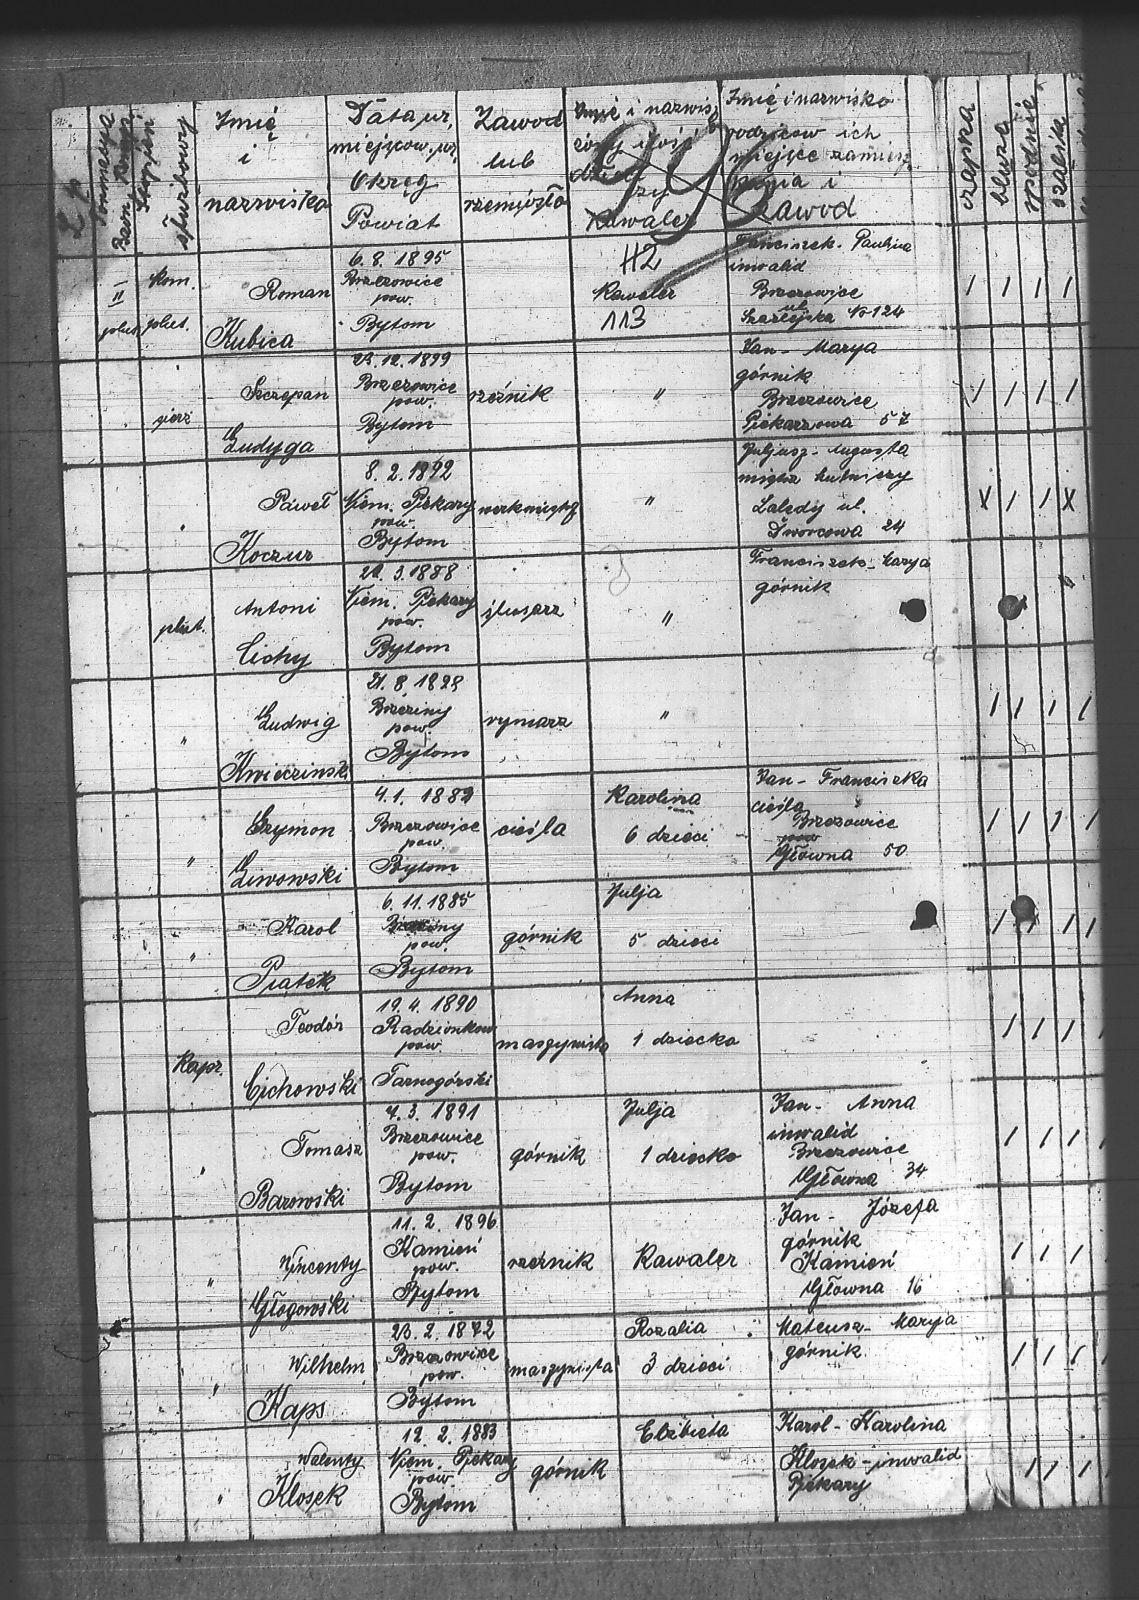 Lp
formacya
Baon, Komp.
Stopień
służbowy
Imię
i
nazwiska
Data, ur,
miejscow. ur,
Okręg
Powiat
Zawód
lub
rzemiosło
Imię i nazwis,
żony ilość
dzieci
czy
Kawaler
Imię i nazwisko
rodziców ich
miejsce zamiesz
kania i
zawód
czapka
bluza
spodnie
96
I
II
plut.
kom.
plut.
Roman
Kubica
6. 8. 1895
Brzezowice
pow.
Bytom
112
Kawaler
113
Franciszek - Paulina
inwalid
Brzezowice
ul.
Szarlejska No 124
sierż
Szczepan
Ludyga
23. 12. 1899
Brzezowice
pow.
Bytom
rzeźnik
"
Jan - Marya
górnik
Brzezowice
Piekarzowa 57
"
Paweł
Koczur
8. 2. 1892
Niem. Piekary
pow.
Bytom
"
Juljusz - Augusta
hutniczy
ul.
Dworcowa 24
plut.
Antoni
Cichy
3. 1888
Niem. Piekary
pow.
Bytom
ślusarz
"
Franciszek - Marya
górnik
"
Ludwig
Kwieczinsk
21. 8. 1898
Brzeziny
pow.
Bytom
rymarz
"
"
Szymon
Liwowski
4. 1. 1882
Brzezowice
pow.
Bytom
cieśla
Karolina
6 dzieci
Jan - Franciszka
cieśla
Brzezowice
pow
Główna 50
"
Karol
Piątek
6. 11. 1885
Brzeziny
pow.
Bytom
górnik
Julja
5 dzieci
Kapr.
Teodor
Cichowski
19. 4. 1890
Radzionków
pow.
Tarnogórski
maszynista
Anna
1 dziecko
"
Tomasz
Barowski
4. 3. 1891
Brzezowice
pow.
Bytom
górnik
Julja
1 dziecko
Jan - Anna
inwalid
Brzezowice
Główna 34
"
Wincenty
Głogowski
11. 2. 1896
Kamień
pow.
Bytom
rzeźnik
Kawaler
Jan - Józefa
górnik
Kamień
Główna 16
"
Wilhelm
Kaps
23. 2. 1872
Brzezowice
pow.
Bytom
maszynista
Rozalia
3 dzieci
Mateusz - Marya
górnik
"
Walenty
Klosek
12. 2. 1883
Niem. Piekary
pow.
Bytom
górnik
Elżbieta
Karol - Karolina
Klosek - inwalid
Piekary